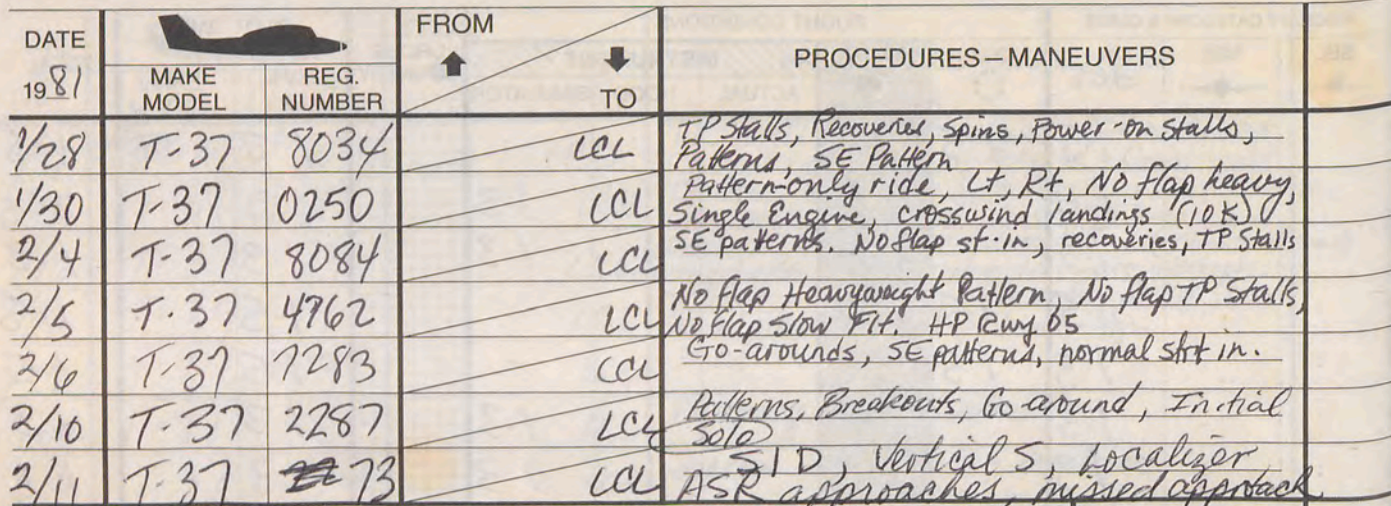 DATE
1981
MAKE MODEL
REG. NUMBER
FROM
TO
PROCEDURES–MANEUVERS
1/28 T-37 8034 LCL TP Stalls, Recoveries, Spins, Power-on Stalls,
Patterns, SE Pattern
1/30 T-37 0250 LCL Pattern-only ride, Lt, Rt, No flap heavy,
Single Engine, crosswind landings (10K)
2/4 T-37 8084 LCL SE patterns. No flap st-in, recoveries, TP Stalls
2/5 T-37 4762 LCL No flap Heavyweight Pattern, No flap TP Stalls,
No flap Slow Flt. HP Rwy 05
2/6 T-37 7283 LCL Go-arounds, SE patterns, normal strt in.
2/10 T-37 2287 LCL Patterns, Breakouts, Go-around, Initial
Solo
2/11 T-37 73 LCL SID, Vertical S, Localizer
ASR approaches, missed approach